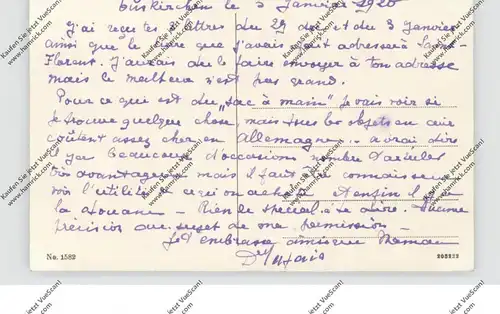 Euskirchen le 5 Janvier 1920
J'ai reçu tes lettres du 29 et du 3 Janvier
ainsi que le livre que j'avais fait adresser à Saint-
Florent. J'aurais dû le faire envoyer à ton adresse
mais le malheur n'est pas grand.
Pour ce qui est du "sac à main" je vais voir si
je trouve quelque chose mais tous les objets en cuir
coûtent assez cher en Allemagne. à vrai dire
il y a beaucoup d'occasions nombre d'articles
très avantageux mais il faut être connaisseur
voir l'utilité de ce qu'on achète et enfin il y a
la douane - Rien de spécial à te dire. Aucune
précision au sujet de ma permission -
Je t'embrasse ainsi que Maman
No. 1582
202222